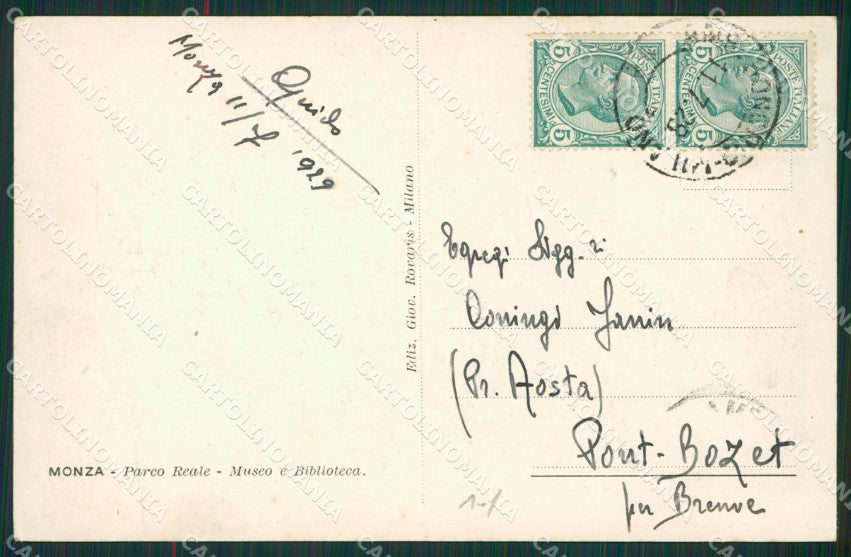 Guido
Monza 11/7 1929
Ediz. Giov. Rovaris - Milano
MONZA - Parco Reale - Museo e Biblioteca.
POSTE ITALIANE
CENTESIMI
5 5
POSTE ITALIANE
CENTESIMI
5 5
Egregi Sigg.ri
Coniugi Janin
(Pr. Aosta)
Pont-Bozet
per Brenve
1-/
CARTOLINOMANIA